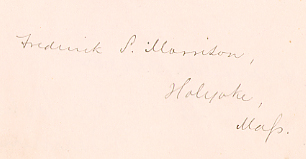 Frederick S. Morrison,
Holyoke,
Mass.